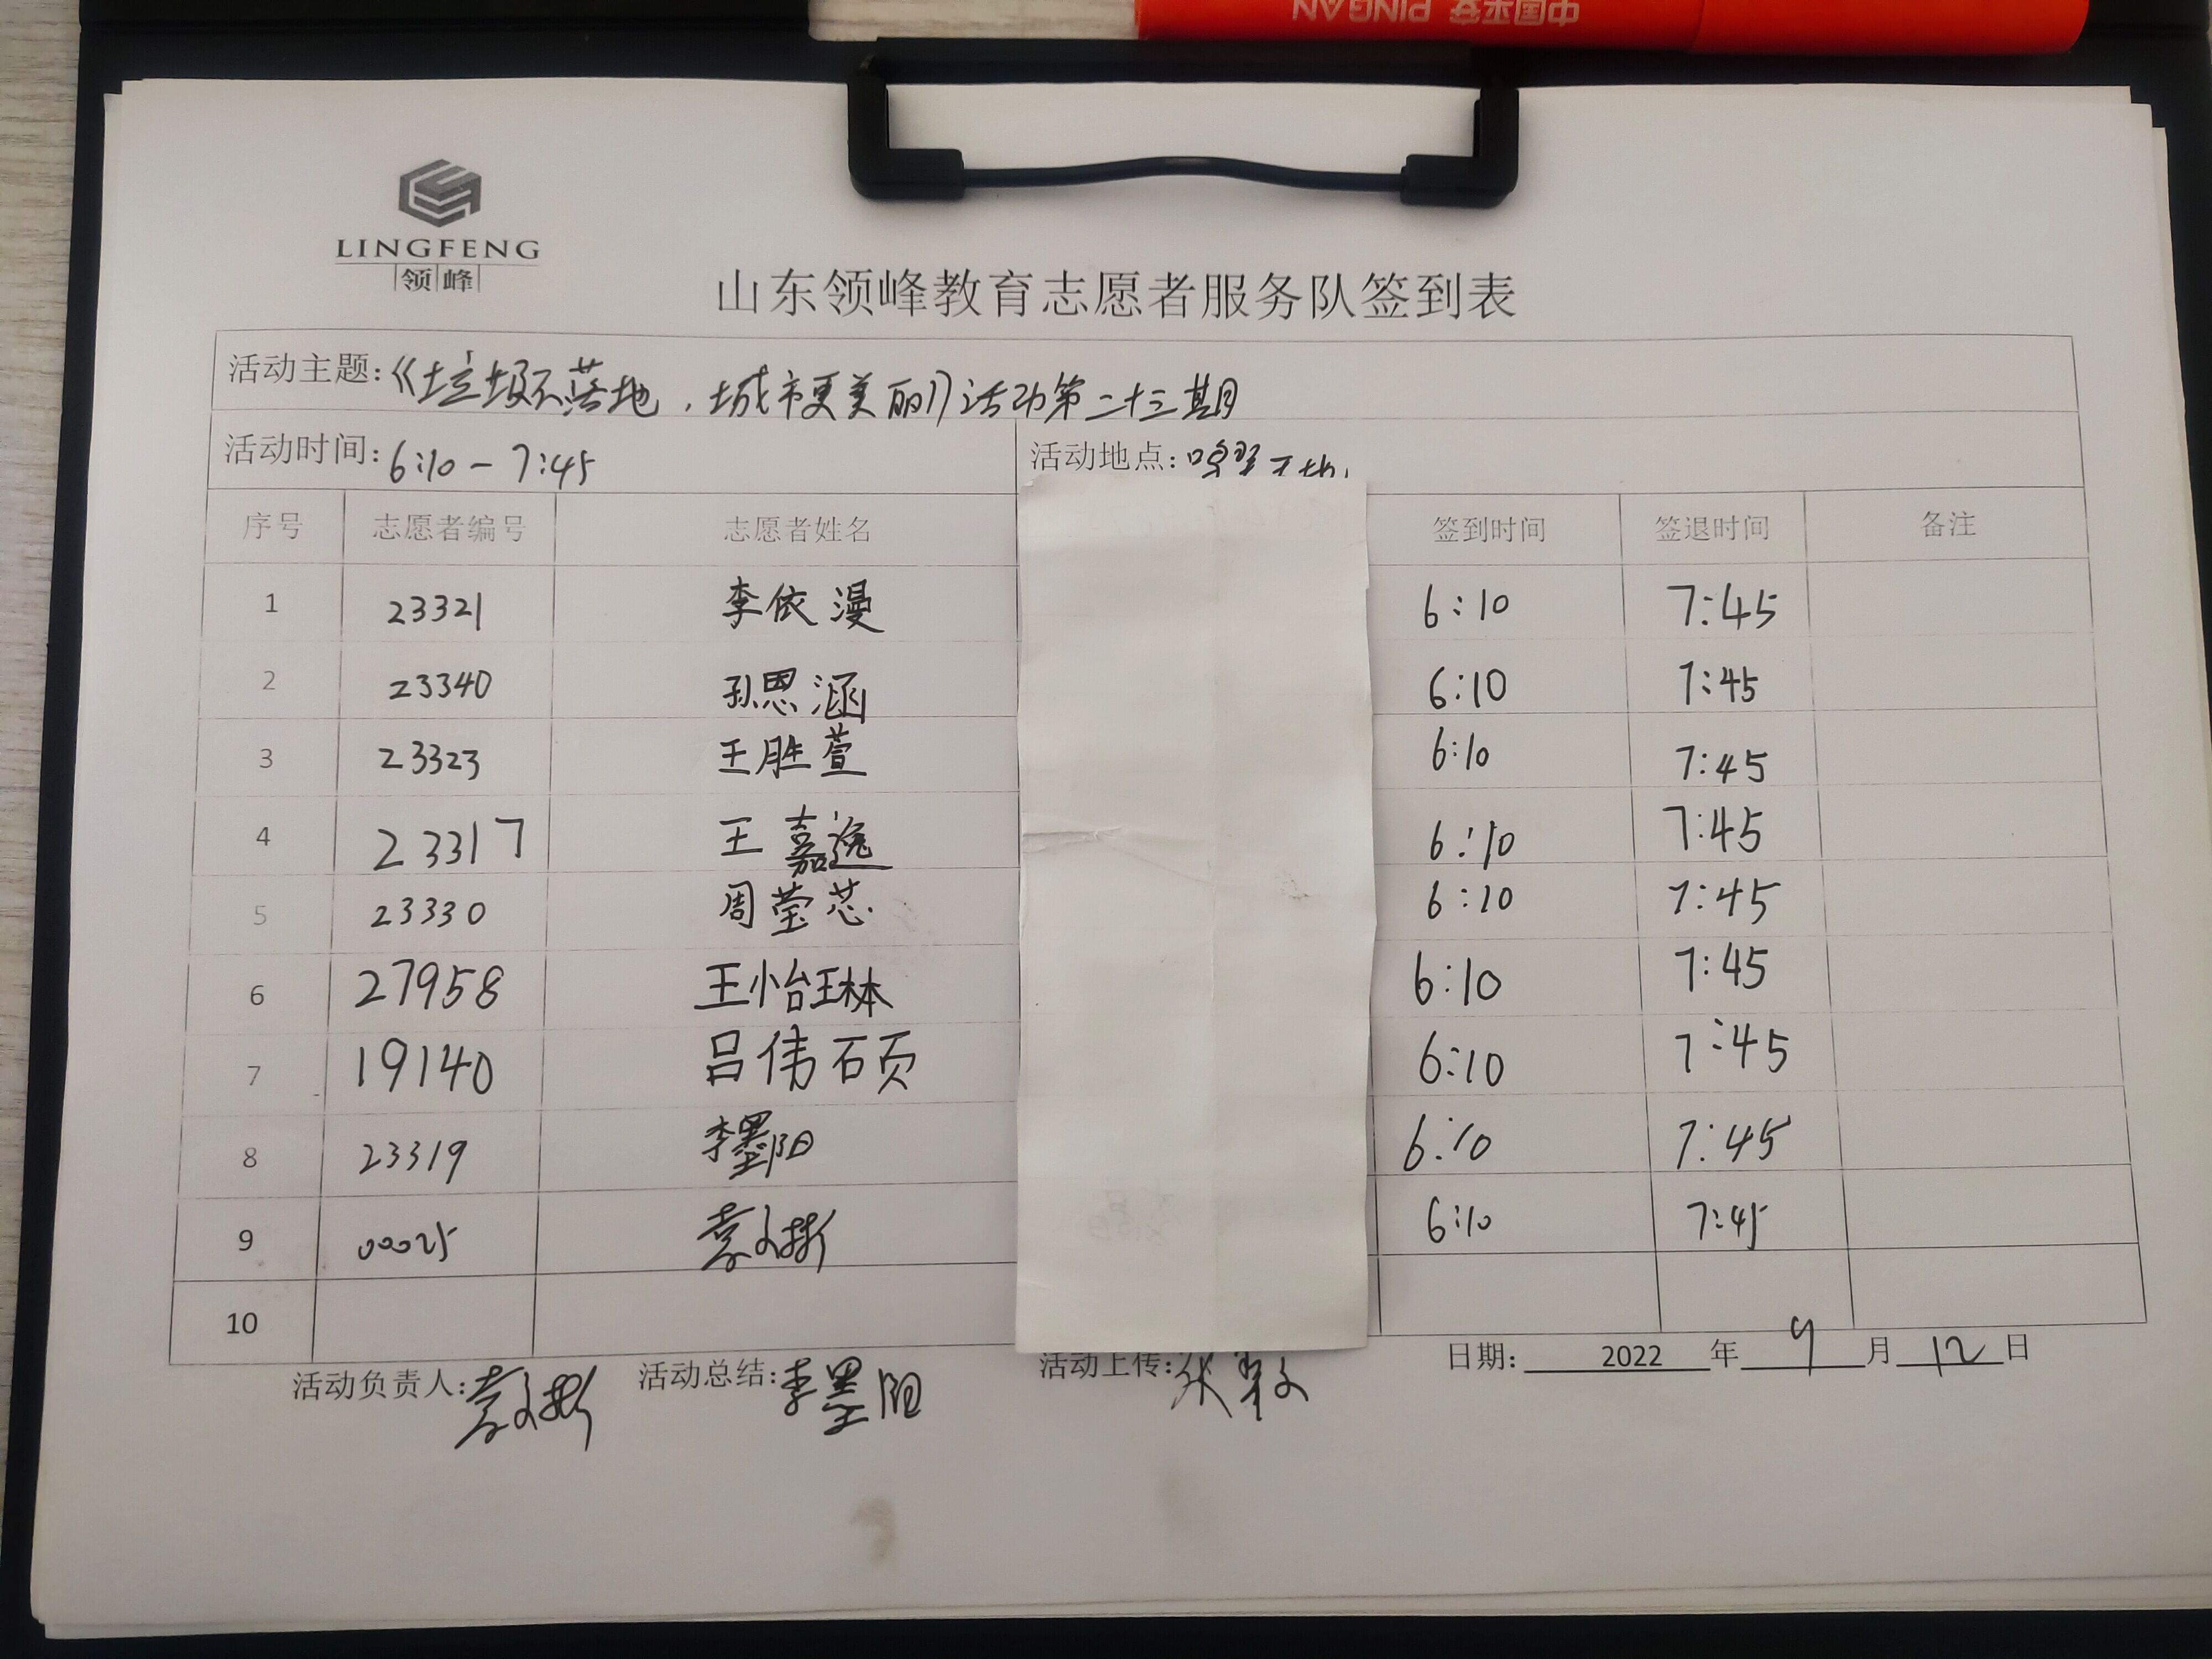 中国平安 PINGAN
LINGFENG
领峰
山东领峰教育志愿者服务队签到表
活动主题:《垃圾不落地,城市更美丽》活动第二十三期
活动时间:6:10-7:45 活动地点:
序号 志愿者编号 志愿者姓名 签到时间 签退时间 备注
1 23321 李依漫 6:10 7:45
2 23340 孙思涵 6:10 7:45
3 23323 王胜萱 6:10 7:45
4 23317 王嘉逸 6:10 7:45
5 23330 周莹芯 6:10 7:45
6 27958 王怡琳 6:10 7:45
7 19140 吕伟硕 6:10 7:45
8 23319 李墨阳 6:10 7:45
9 00025 袁文彬 6:10 7:45
10
活动负责人:袁文彬 活动总结:李墨阳 活动上传: 日期: 2022 年 9 月 12 日